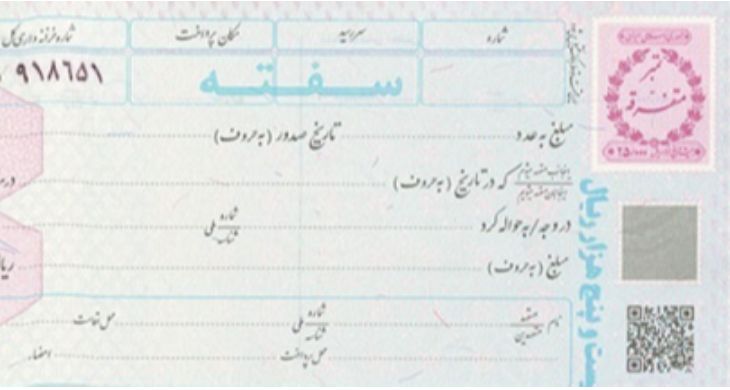 شماره
سررسید
مکان پرداخت
شماره خزانه داری کل
۹۱۸۶۵۱
سفته
تمبر
متفرقه
۲۵/۰۰۰
مبلغ به عدد
تاریخ صدور (به حروف)
اینجانب متعهد میشوم
اینجانبان متعهد میشویم
که در تاریخ (به حروف)
در وجه / به حواله کرد
شماره ملی
شناسه
مبلغ (به حروف)
ریا
یست و پنج هزار ریال
نام متعهد
متعهدین
شماره ملی
شناسه
محل اقامت
محل پرداخت
امضاء